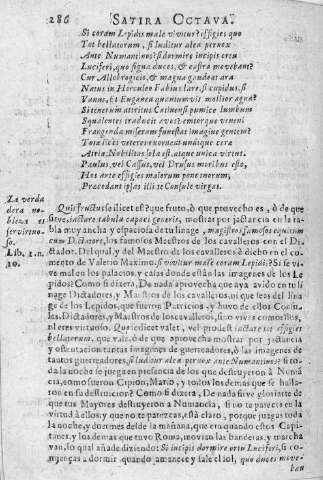 286 SATIRA OCTAVA.
Si coram Lepidis male vivitur? effigies quo
Tot bellatorum, si luditur alea pernox
Ante Numantinos? si dormire incipis ortu
Luciferi, quo signa duces, & castra movebant?
Cur Allobrogicis, & magna gaudeat ara
Natus in Herculeo Fabius lare, si cupidus, si
Vanus, et Euganea quantumvis mollior agna?
Si tenerum attritus Catinensi pumice lumbum
Squalentes traducit avos? emptorque veneni
Frangenda miseram funestat imagine gentem?
Tota licet veteres exornent undique cera
Atria, Nobilitas sola est, atque unica virtus.
Paulus, vel Cossus, vel Drusus moribus esto,
Hos ante effigies maiorum pone tuorum,
Præcedant ipsas illi te Consule virgas.
La verda
dera no-
bleza es
ser virtuo-
so.
Lib. 1. n.
10.
Quis fructus? scilicet est? que fruto, ò que provecho es, ò de que
sirve, iactare tabula capaci generis, mostrar por jactancia en la ta-
bla muy ancha y espaciosa de tu linage, magistros famosos equitum
cum Dictatore, los famosos Maestros de los cavalleros con el Di-
ctador. Del qual, y del Maestro de los cavalleros è dicho en el co-
mento de Valerio Maximo, si vivitur male coram Lepidis? Si se vi-
ve mal en los palacios y casas donde están las imagenes de los Le-
pidos? Como si dixera, De nada aprovecha que aya avido en tu li-
nage Dictadores, y Maestros de los cavalleros, ni que seas del lina-
ge de los Lepidos, que fueron Patricios, y huvo de ellos Consu-
les, Dictadores, y Maestros de los cavalleros, si no vives como vis-
tes, ni eres virtuoso. Quid scilicet valet, vel prodest iactare tot effigies
bellatorum, que vale, ò de que aprovecha mostrar por jactancia
y ostentacion tantas imagenes de guerreadores, ò las imagenes de
tantos guerreadores, si luditur alea pernox ante Numantinos? si to-
da la noche se juega en presencia de los que destruyeron à Numã-
cia, como fueron Cipion, Mario, y todos los demas que se halla-
ron en su destruicion? Como si dixera, De nada sirve gloriarte de
que tus Mayores destruyeron a Numancia, si no te pareces en la
virtud à ellos, y que no te parezcas, está claro, porque juegas toda
la noche, y duermes desde la mañana, que era quando estos Capi-
tanes, y los demas que tuvo Roma, movian las banderas, y marcha
van, lo qual añade diziendo: Si incipis dormire ortu Luciferi, si co-
mienças a dormir quando amanece y sale el sol, quo duces move-
ban